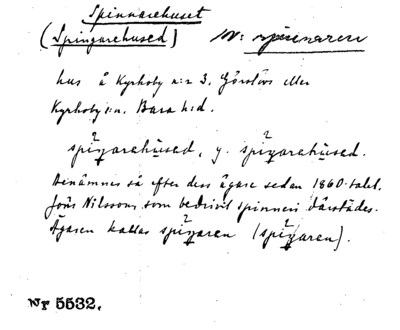 Spinnarehuset
(Spingarehused) N: spinnaren
hus å Kyrkoby n:r 3, Görslövs eller
Kyrkoby s:n. Bara h:d.
spiŋarahúsed, y. spiŋarahused.
Benämnes så efter dess ägare sedan 1860-talet,
Jöns Nilsson, som bedrivit spinneri därstädes.
Ägaren kallas spiŋaren (spiŋaren).
Nr 5532.